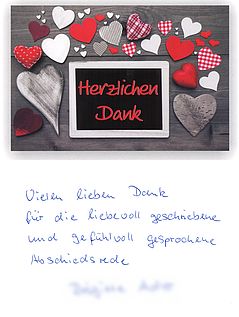 Herzlichen
Dank
Vielen lieben Dank
für die liebevoll geschriebene
und gefühlvoll gesprochene
Abschiedsrede